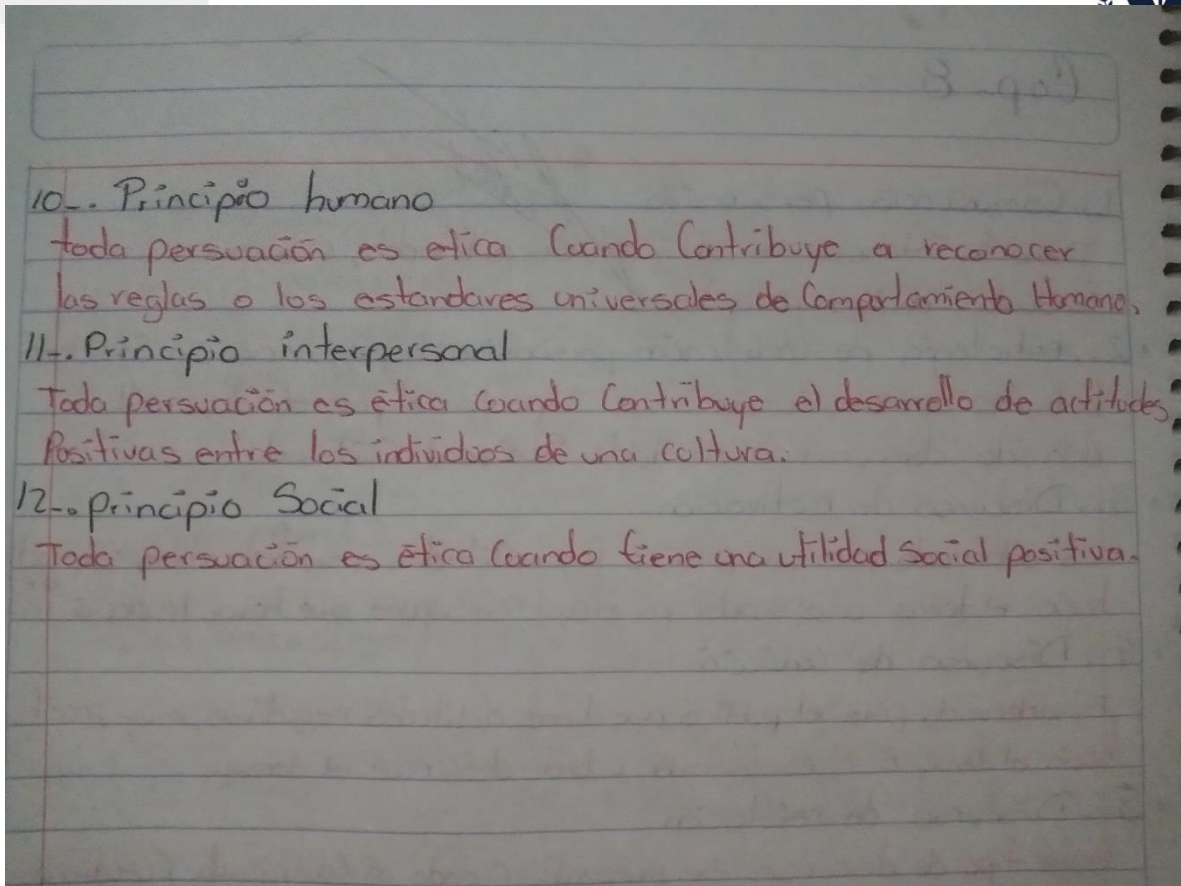 10-. Principio humano
toda persuación es etica Cuando Contribuye a reconocer
las reglas o los estandares universales de Comportamiento Humano.
11-. Principio interpersonal
Toda persuación es ética Cuando Contribuye el desarrollo de actitudes
Positivas entre los individuos de una cultura.
12-. principio Social
Toda persuación es ética Cuando tiene una utilidad Social positiva.